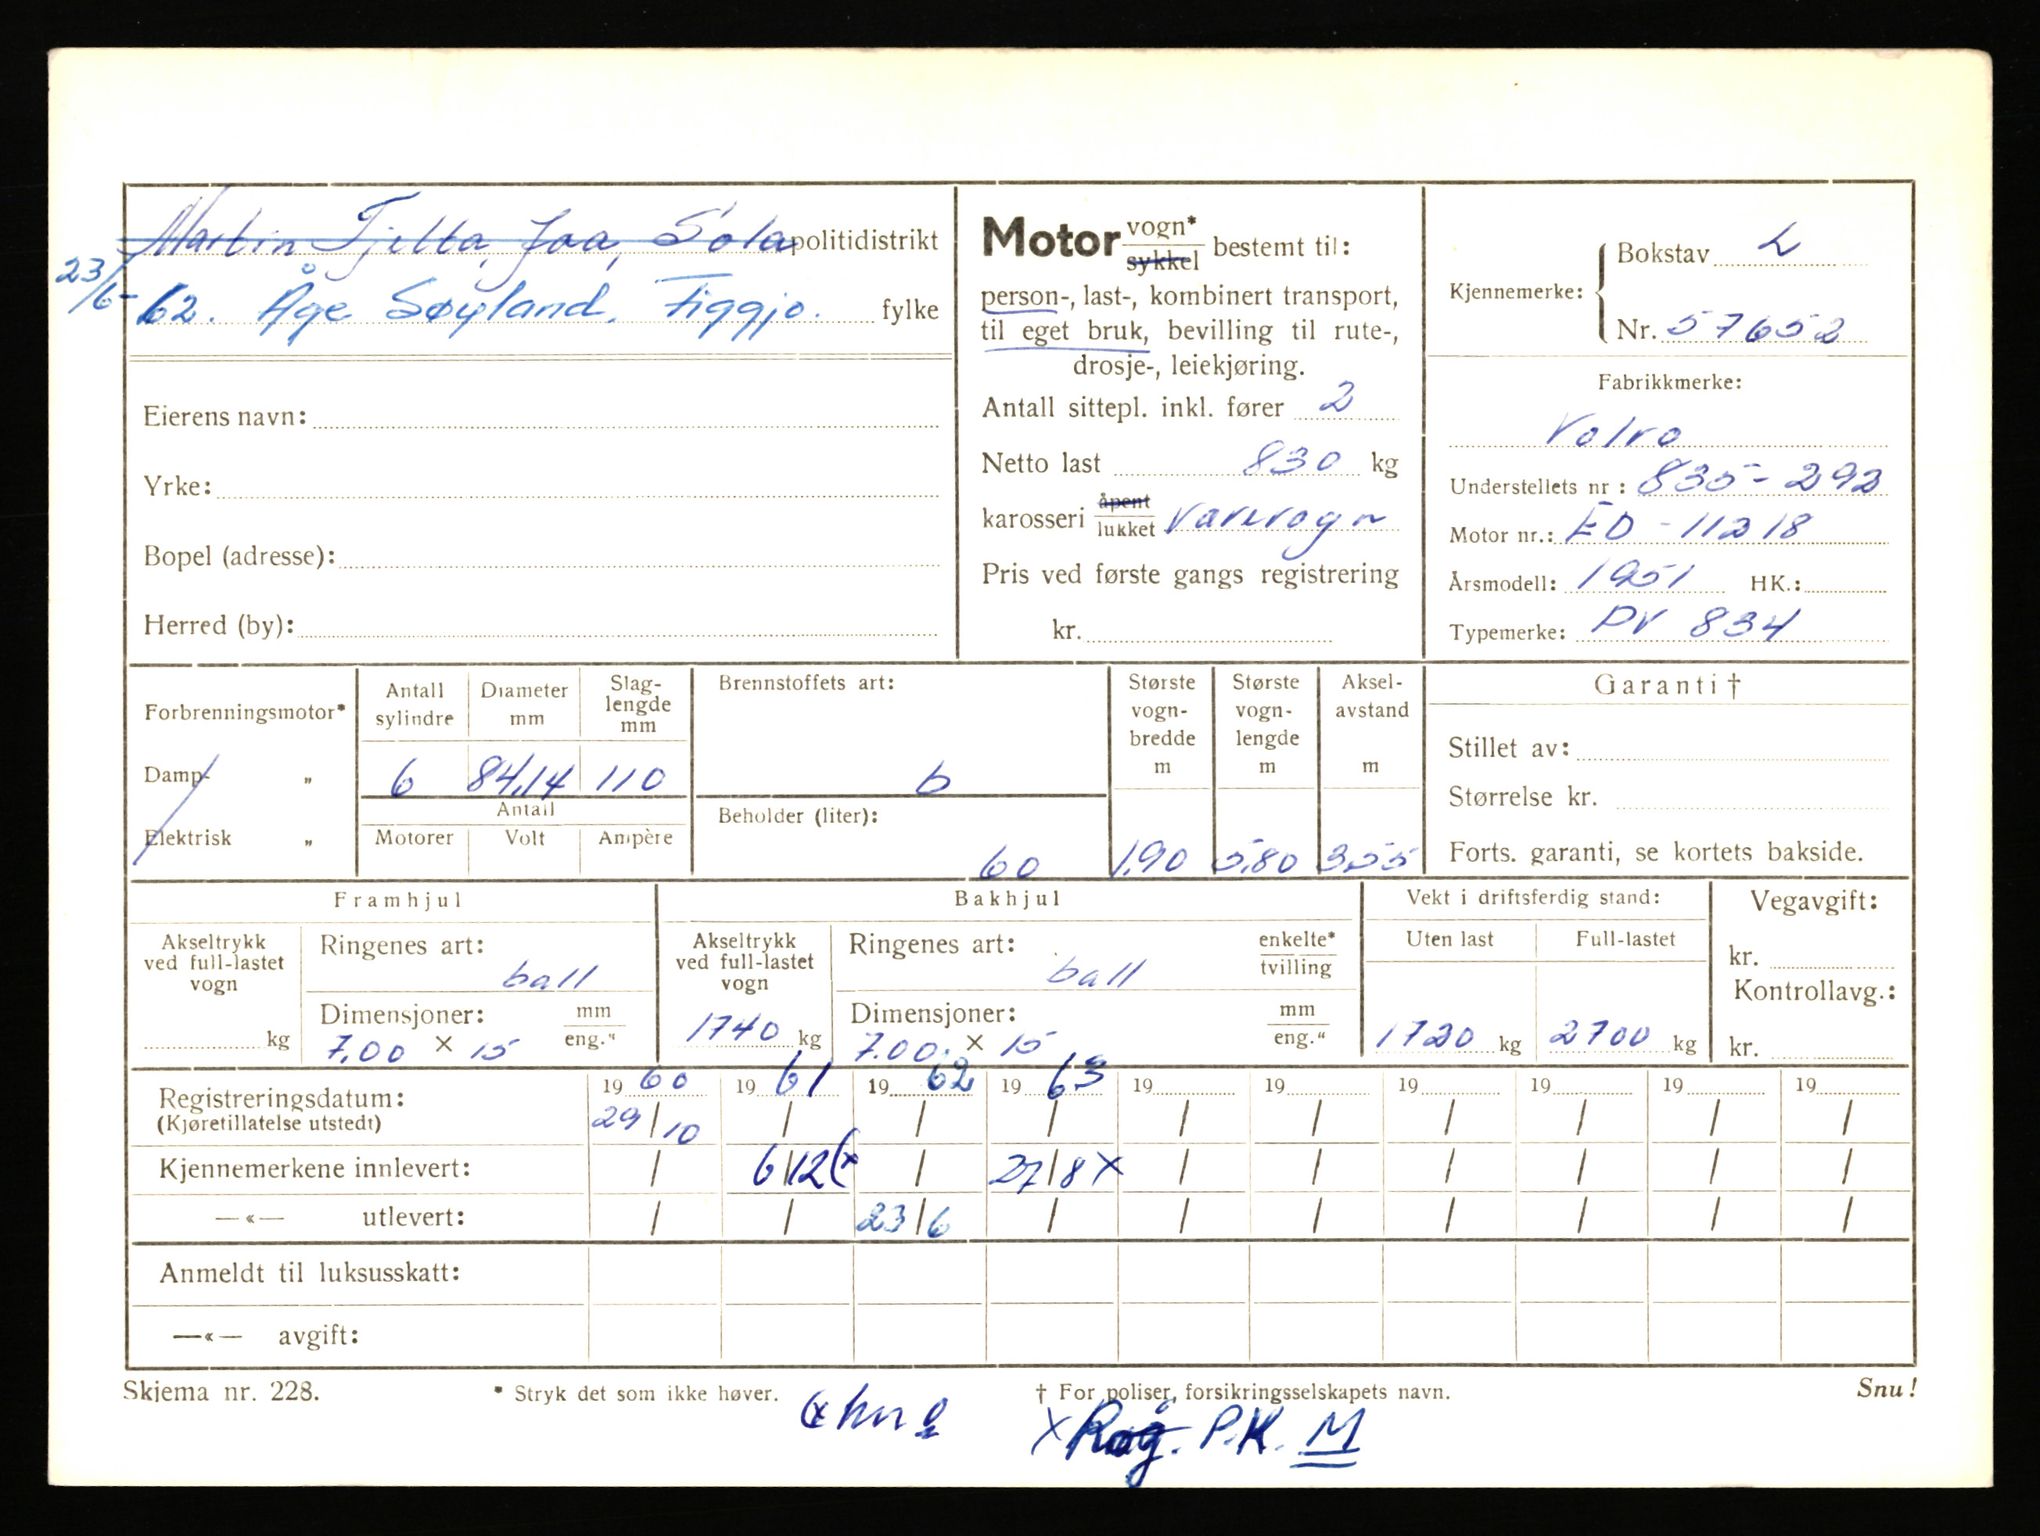 Martin Tjelta, Joa, Sola politidistrikt
23/6-62. Åge Søyland, Figgjo. fylke
Eierens navn:
Yrke:
Bopel (adresse):
Herred (by):
Motor vogn* / sykkel bestemt til:
person-, last-, kombinert transport,
til eget bruk, bevilling til rute-,
drosje-, leiekjøring.
Antall sittepl. inkl. fører 2
Netto last 830 kg
karosseri åpent / lukket varevogn
Pris ved første gangs registrering
kr.
Kjennemerke: Bokstav L
Nr. 57652
Fabrikkmerke:
Volvo
Understellets nr : 835-292
Motor nr.: ED-11218
Årsmodell: 1951 HK.:
Typemerke: PV 834
Forbrenningsmotor*
Damp- „
Elektrisk „
Antall sylindre Diameter mm Slag-lengde mm
6 84,14 110
Antall
Motorer Volt Ampère
Brennstoffets art:
b
Beholder (liter):
60
Største vogn-bredde m Største vogn-lengde m Aksel-avstand m
1.90 5.80 355
Garanti †
Stillet av:
Størrelse kr.
Forts. garanti, se kortets bakside.
Framhjul
Akseltrykk ved full-lastet vogn
kg
Ringenes art:
ball
Dimensjoner: mm / eng."
7.00 × 15
Bakhjul
Akseltrykk ved full-lastet vogn
1740 kg
Ringenes art: enkelte* / tvilling
ball
Dimensjoner: mm / eng."
7.00 × 15
Vekt i driftsferdig stand:
Uten last Full-lastet
1720 kg 2700 kg
Vegavgift:
kr.
Kontrollavg.:
kr.
19 60 19 61 19 62 19 63 19 19 19 19 19 19
Registreringsdatum:
(Kjøretillatelse utstedt)
29/10 / / / / / / / / /
Kjennemerkene innlevert: / 6/12 (x / 27/8 x / / / / / /
—«— utlevert: / / 23/6 / / / / / / /
Anmeldt til luksusskatt:
—«— avgift:
Skjema nr. 228.
* Stryk det som ikke høver.
† For poliser, forsikringsselskapets navn.
Snu!
x Rog. P.K. M